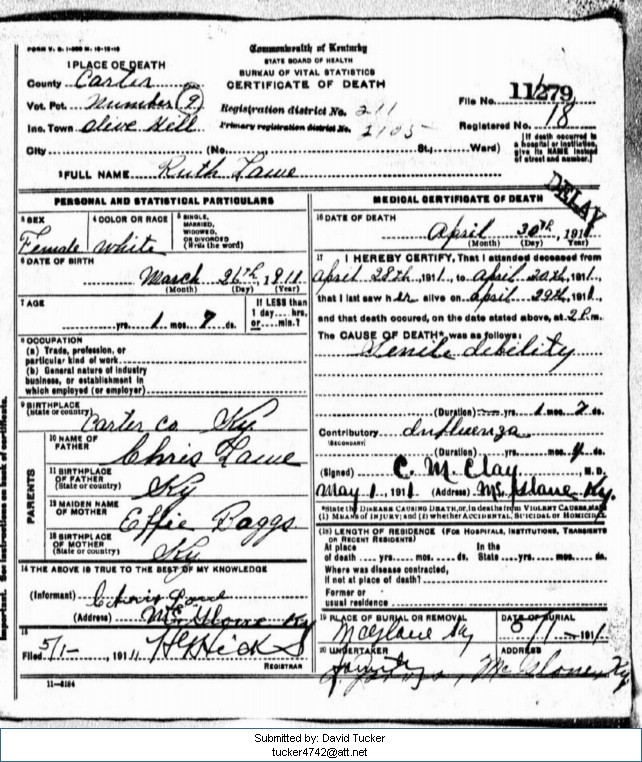 FORM V. S. 1-
Commonwealth of Kentucky
STATE BOARD OF HEALTH
BUREAU OF VITAL STATISTICS
CERTIFICATE OF DEATH
1 PLACE OF DEATH
County Carter
Vot. Pct. Number (9)
Inc. Town Olive Hill
Registration district No. 211
Primary registration district No. 2105
File No. 11279
Registered No. 18
City (No. St.; Ward)
[If death occurred in a hospital or institution, give its NAME instead of street and number.]
2 FULL NAME Ruth Lawe
DELAY
PERSONAL AND STATISTICAL PARTICULARS
3 SEX Female
4 COLOR OR RACE White
5 SINGLE, MARRIED, WIDOWED, OR DIVORCED (Write the word)
6 DATE OF BIRTH March 26th, 1911
(Month) (Day) (Year)
7 AGE yrs. 1 mos. 7 ds.
If LESS than 1 day....hrs. or....min.?
8 OCCUPATION
(a) Trade, profession, or particular kind of work
(b) General nature of industry business, or establishment in which employed (or employer)
9 BIRTHPLACE (State or country) Carter Co Ky
PARENTS
10 NAME OF FATHER Chris Lawe
11 BIRTHPLACE OF FATHER (State or country) Ky
12 MAIDEN NAME OF MOTHER Effie Baggs
13 BIRTHPLACE OF MOTHER (State or country) Ky
14 THE ABOVE IS TRUE TO THE BEST OF MY KNOWLEDGE
(Informant) Chris
(Address) McGlone Ky
15
Filed 5/1-, 1911 Hicks
REGISTRAR
11-3184
MEDICAL CERTIFICATE OF DEATH
16 DATE OF DEATH
April 30th, 1911
(Month) (Day) (Year)
17 I HEREBY CERTIFY, That I attended deceased from
April 28th, 1911, to April 30th, 1911,
that I last saw her alive on April 29th, 1911,
and that death occured, on the date stated above, at 2 P.m.
The CAUSE OF DEATH* was as follows:
Senile debility
(Duration) yrs. 1 mos. 7 ds.
Contributory Influenza
(SECONDARY)
(Duration) yrs. mos. 4 ds.
(Signed) C. M. Clay M. D.
May 1, 1911 (Address) McGlone Ky.
*State the DISEASE CAUSING DEATH, or, in deaths from VIOLENT CAUSES, state (1) MEANS OF INJURY; and (2) whether ACCIDENTAL, SUICIDAL or HOMICIDAL
18 LENGTH OF RESIDENCE (FOR HOSPITALS, INSTITUTIONS, TRANSIENTS OR RECENT RESIDENTS)
At place of death yrs. mos. ds. In the State yrs. mos. ds.
Where was disease contracted, if not at place of death?
Former or usual residence
19 PLACE OF BURIAL OR REMOVAL McGlone Ky
DATE OF BURIAL 5/1-, 1911
20 UNDERTAKER
ADDRESS McGlone, Ky
Important. See instructions on back of certificate.
Submitted by: David Tucker
tucker4742@att.net